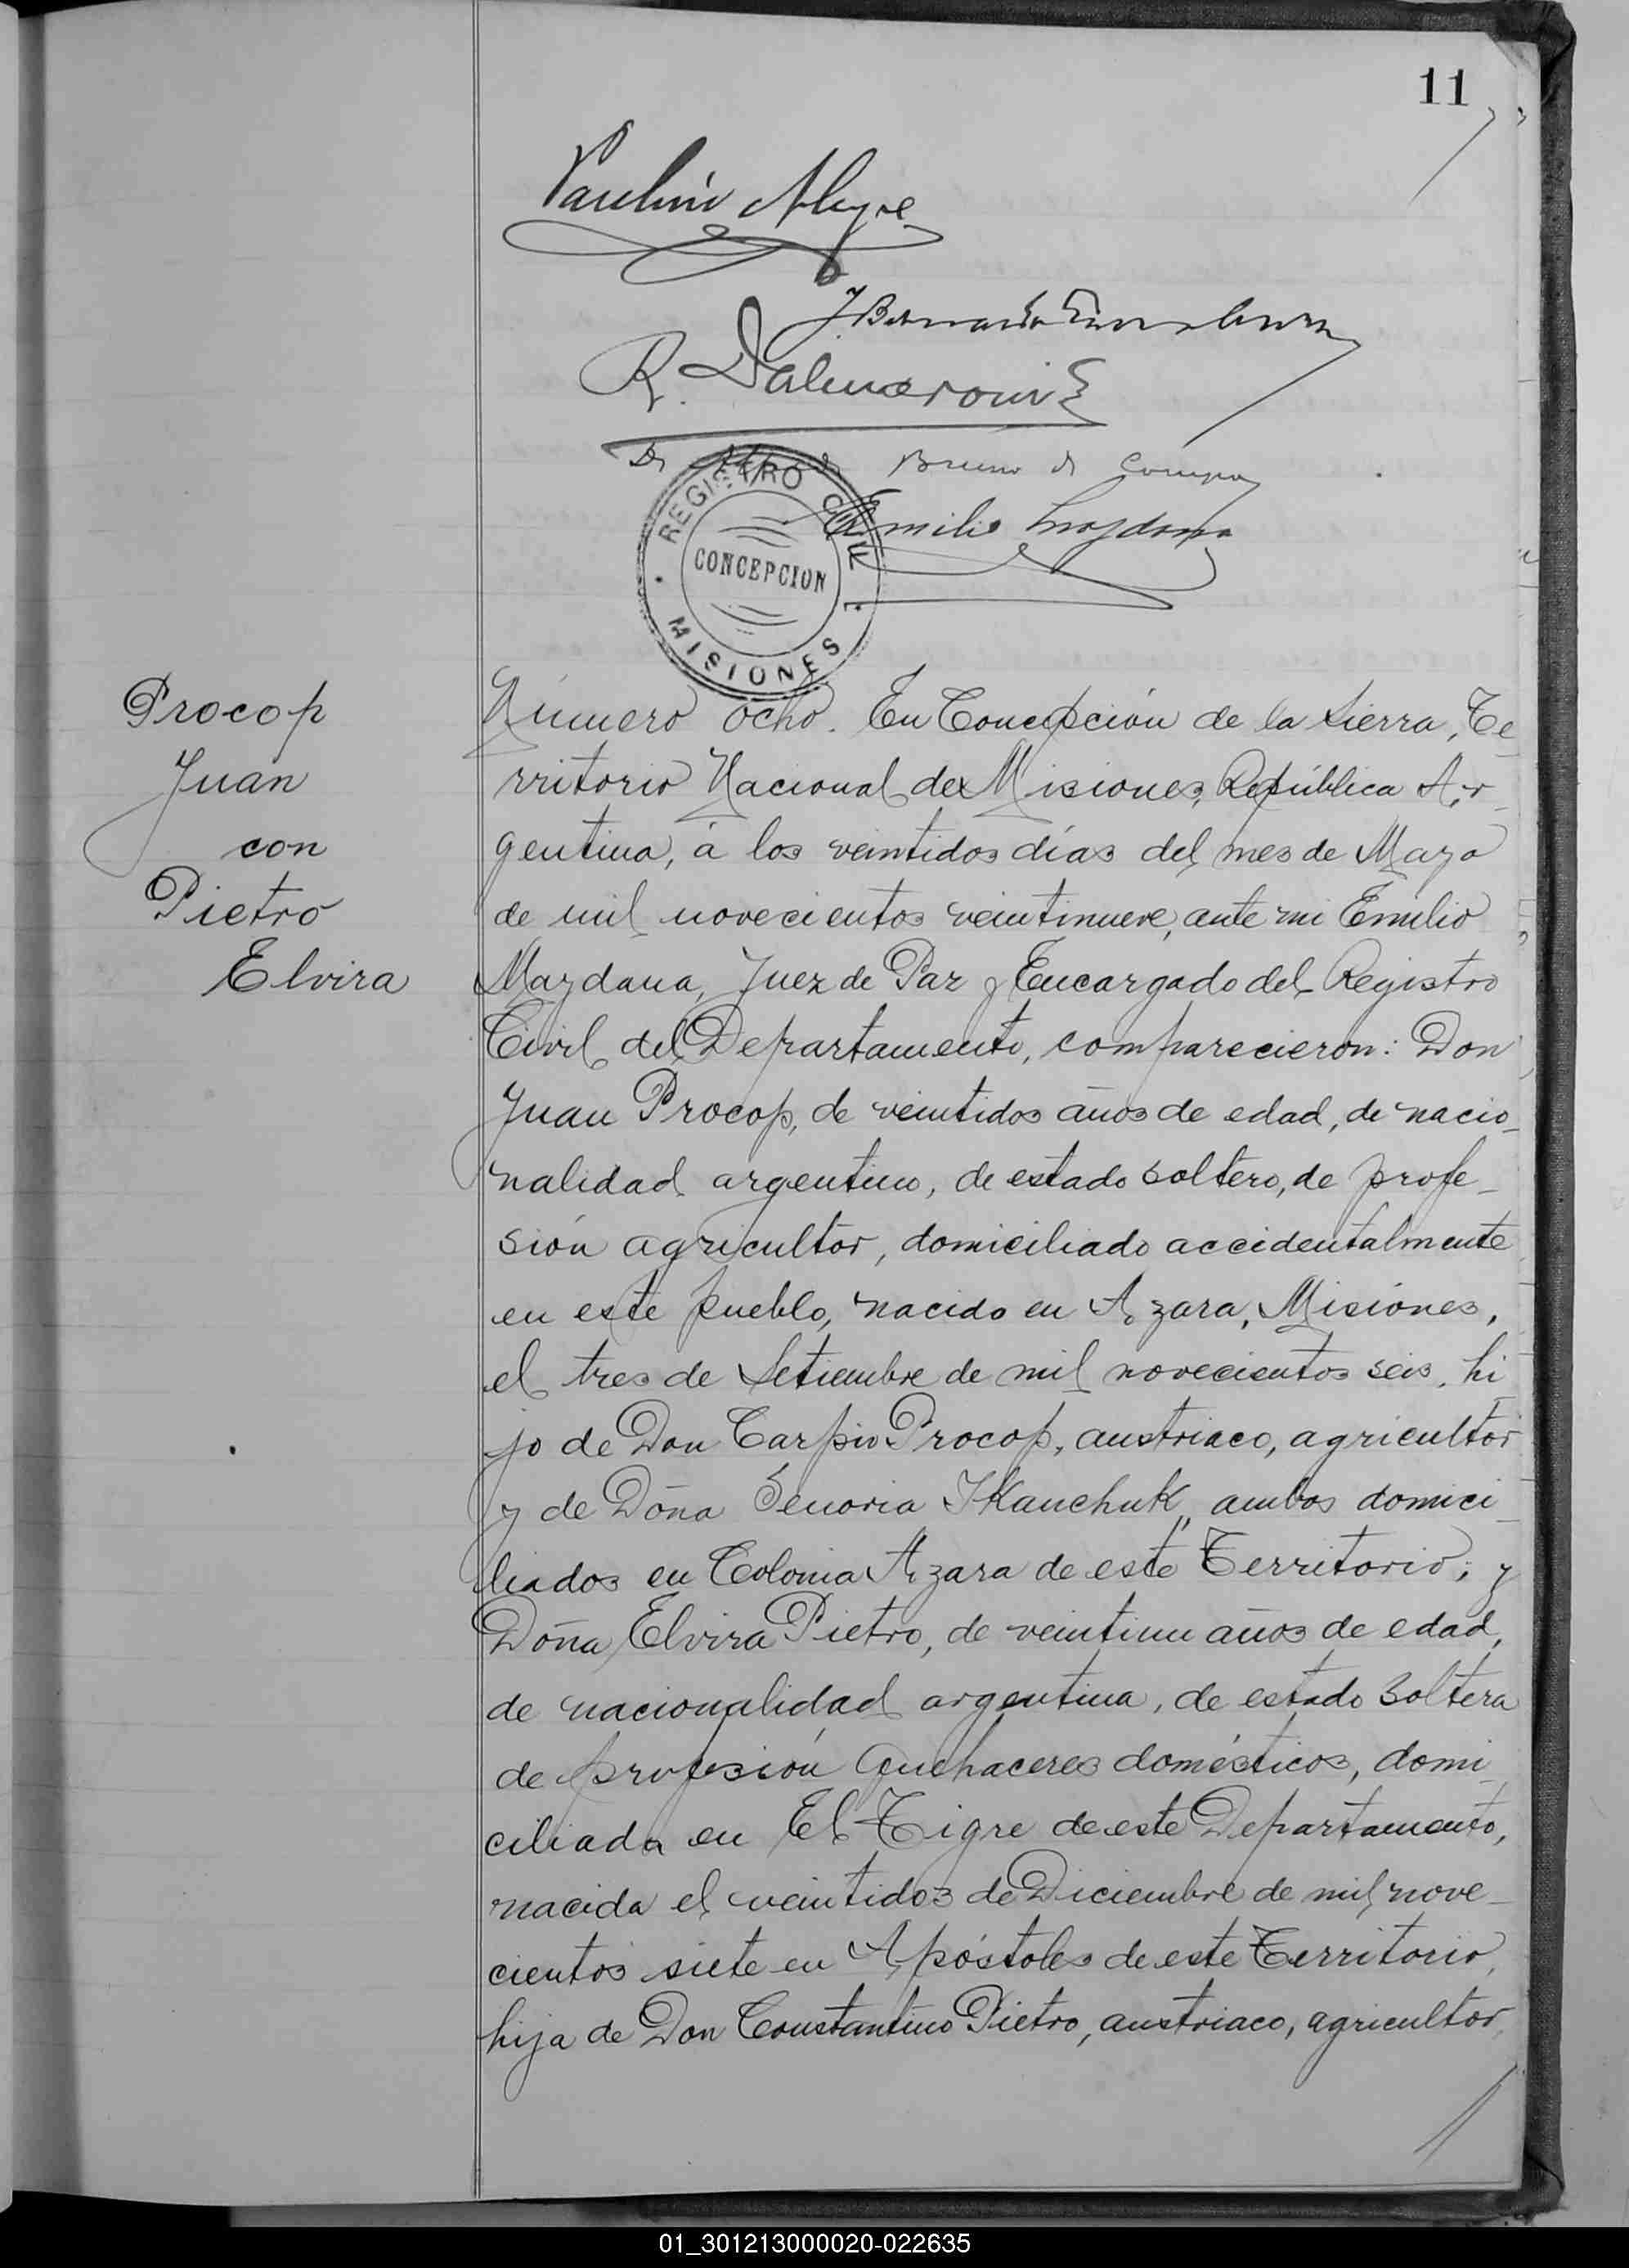 11
Paulino Alegre
R.
Emilio Mazdana
REGISTRO CIVIL
CONCEPCION
MISIONES
Procop
Juan
con
Pietro
Elvira
Número ocho. En Concepción de la Sierra, Te-
rritorio Nacional de Misiones, República Ar-
gentina, á los veintidos días del mes de Mayo
de mil novecientos veintinueve, ante mi Emilio
Mazdana, Juez de Paz y Encargado del Registro
Civil del Departamento, comparecieron: Don
Juan Procop, de veintidos años de edad, de nacio-
nalidad argentino, de estado soltero, de profe-
sión agricultor, domiciliado accidentalmente
en este pueblo, nacido en Azara, Misiones,
el tres de Setiembre de mil novecientos seis, hi-
jo de Don Carpio Procop, austriaco, agricultor
y de Doña Senoria Kanchuk, ambos domici-
liados en Colonia Azara de este Territorio; y
Doña Elvira Pietro, de veintiun años de edad,
de nacionalidad argentina, de estado soltera
de profesión quehaceres domésticos, domi-
ciliada en El Tigre de este Departamento,
nacida el veintidos de Diciembre de mil nove-
cientos siete en Apóstoles de este Territorio,
hija de Don Constantino Pietro, austriaco, agricultor,
01_301213000020-022635